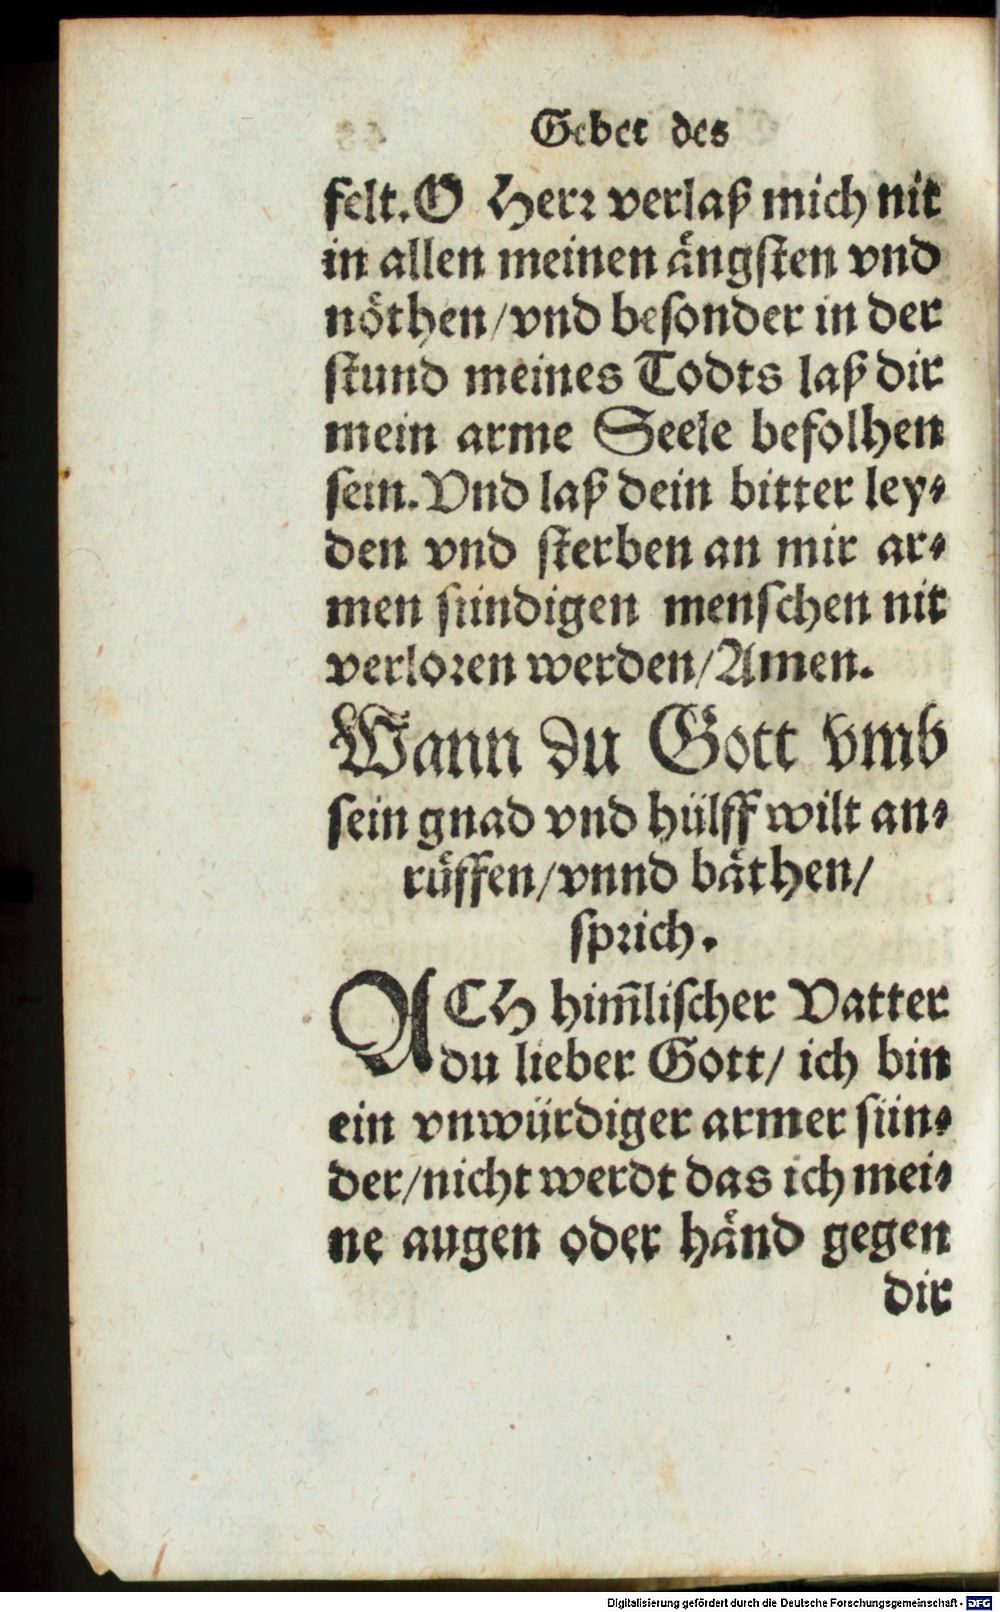 Gebet des
felt. O Herr verlaß mich nit
in allen meinen ängsten vnd
nöthen/vnd besonder in der
stund meines Todts laß dir
mein arme Seele befolhen
sein. Vnd laß dein bitter ley-
den vnd sterben an mir ar-
men sündigen menschen nit
verloren werden/Amen.
Wann du Gott vmb
sein gnad vnd hülff wilt an-
rüffen/vnnd bäthen/
sprich.
ACH him̄lischer Vatter
du lieber Gott/ ich bin
ein vnwürdiger armer sün-
der/nicht werdt das ich mei-
ne augen oder händ gegen
dir
Digitalisierung gefördert durch die Deutsche Forschungsgemeinschaft - DFG